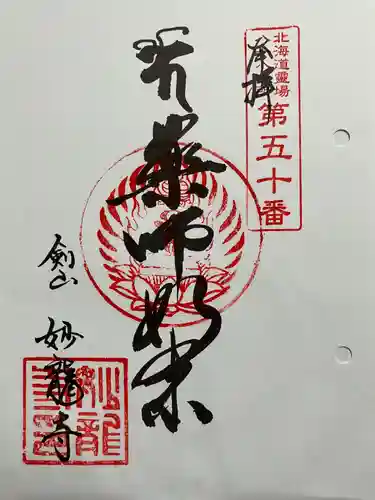 奉拝
北海道霊場
第五十番
薬師如来
剣山
妙龍寺